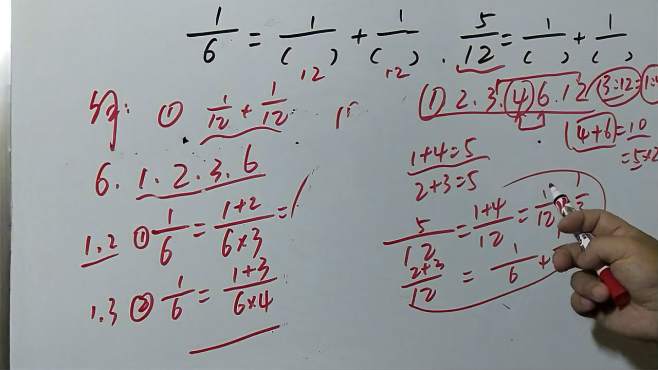 1/6 = 1/( ) + 1/( ) . 5/12 = 1/( ) + 1/( )
12 12
① 1/12 + 1/12
6. 1. 2. 3. 6
1.2 ① 1/6 = (1+2)/(6×3) =
1.3 ② 1/6 = (1+3)/(6×4)
(1) 2. 3. 4 6. 12 3:12=
4+6=10
=5×2
1+4=5
2+3=5
5/12 = (1+4)/12 = 1/12 + 1/3
(2+3)/12 = 1/6 +